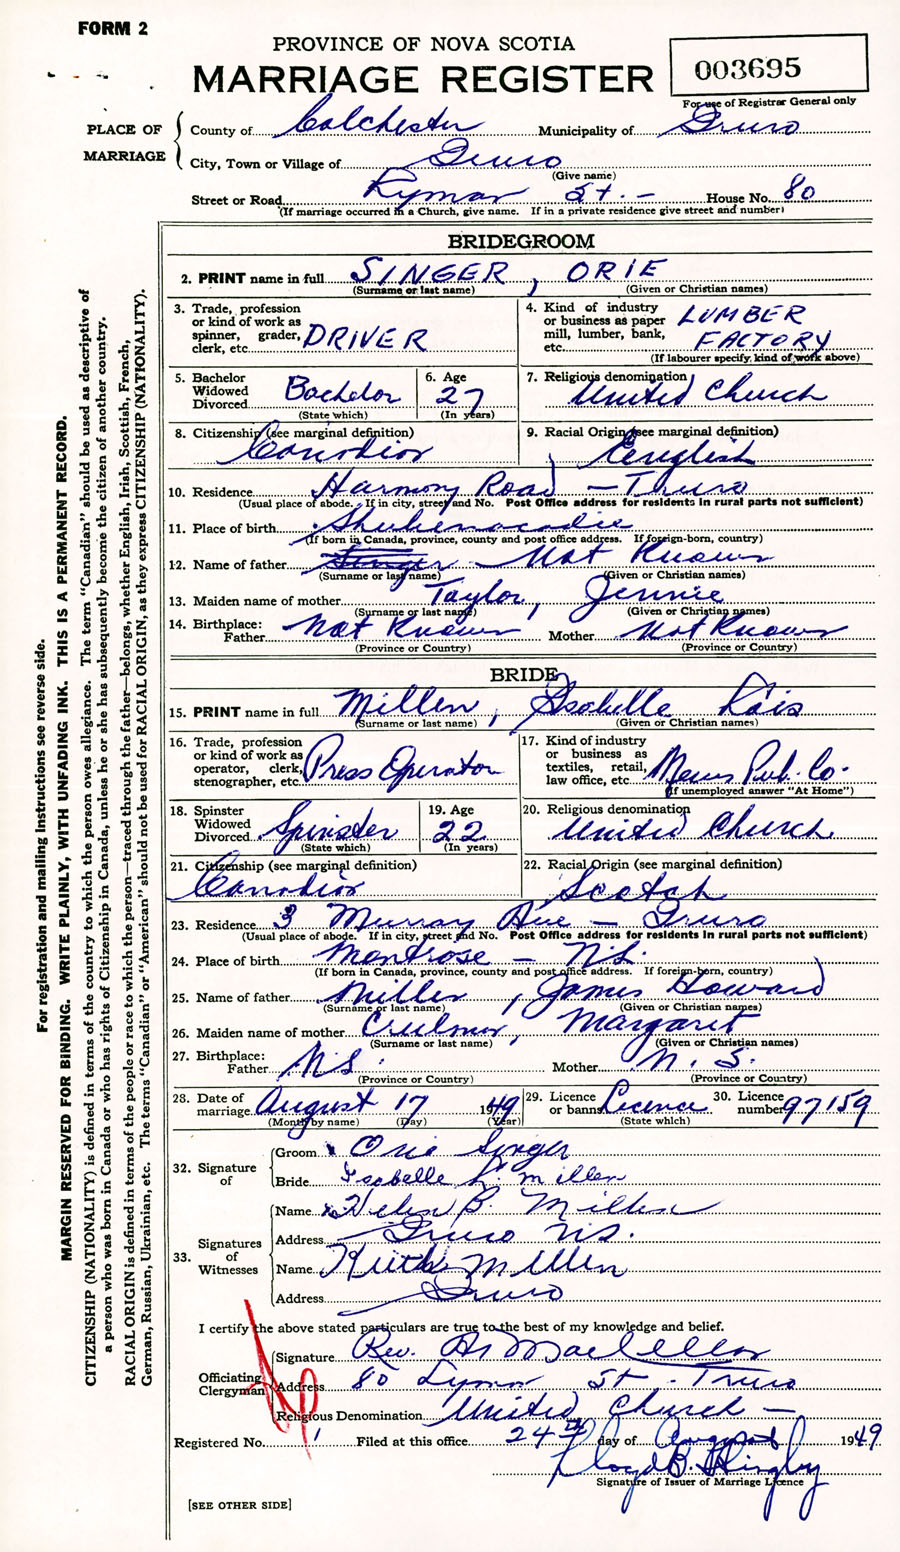 FORM 2
PROVINCE OF NOVA SCOTIA
MARRIAGE REGISTER
003695
For use of Registrar General only
PLACE OF MARRIAGE
County of Colchester Municipality of Truro
City, Town or Village of Truro
(Give name)
Street or Road Lyman St. - House No. 80
(If marriage occurred in a Church, give name. If in a private residence give street and number)
BRIDEGROOM
2. PRINT name in full SINGER, ORIE
(Surname or last name) (Given or Christian names)
3. Trade, profession or kind of work as spinner, grader, clerk, etc. DRIVER
4. Kind of industry or business as paper mill, lumber, bank, etc. LUMBER FACTORY
(If labourer specify kind of work above)
5. Bachelor Widowed Divorced Bachelor
(State which)
6. Age 27
(In years)
7. Religious denomination United Church
8. Citizenship (see marginal definition) Canadian
9. Racial Origin (see marginal definition) English
10. Residence Harmony Road - Truro
(Usual place of abode. If in city, street and No. Post Office address for residents in rural parts not sufficient)
11. Place of birth Shubenacadie
(If born in Canada, province, county and post office address. If foreign-born, country)
12. Name of father Singer Not Known
(Surname or last name) (Given or Christian names)
13. Maiden name of mother Taylor, Jennie
(Surname or last name) (Given or Christian names)
14. Birthplace: Father Not Known Mother Not Known
(Province or Country) (Province or Country)
BRIDE
15. PRINT name in full Millen, Isabelle Lois
(Surname or last name) (Given or Christian names)
16. Trade, profession or kind of work as operator, clerk, stenographer, etc. Press Operator
17. Kind of industry or business as textiles, retail, law office, etc. News Pub. Co.
(If unemployed answer "At Home")
18. Spinster Widowed Divorced Spinster
(State which)
19. Age 22
(In years)
20. Religious denomination United Church
21. Citizenship (see marginal definition) Canadian
22. Racial Origin (see marginal definition) Scotch
23. Residence 3 Murray Ave - Truro
(Usual place of abode. If in city, street and No. Post Office address for residents in rural parts not sufficient)
24. Place of birth Montrose - N.S.
(If born in Canada, province, county and post office address. If foreign-born, country)
25. Name of father Millen, James Howard
(Surname or last name) (Given or Christian names)
26. Maiden name of mother Margaret
(Surname or last name) (Given or Christian names)
27. Birthplace: Father N.S. Mother N. S.
(Province or Country) (Province or Country)
28. Date of marriage August 17 1949
(Month by name) (Day) (Year)
29. Licence or banns Licence
(State which)
30. Licence number 97159
32. Signature of
Groom Orie Singer
Bride Isabelle L. Millen
33. Signatures of Witnesses
Name Helen B. Millen
Address Truro N.S.
Name Keith Millen
Address Truro
I certify the above stated particulars are true to the best of my knowledge and belief.
Officiating Clergyman
Signature Rev. A. MacLellan
Address 80 Lyman St - Truro
Religious Denomination United Church -
Registered No. 1 Filed at this office 24th day of August 1949
Lloyd B.
Signature of Issuer of Marriage Licence
[SEE OTHER SIDE]
For registration and mailing instructions see reverse side.
MARGIN RESERVED FOR BINDING. WRITE PLAINLY, WITH UNFADING INK. THIS IS A PERMANENT RECORD.
CITIZENSHIP (NATIONALITY) is defined in terms of the country to which the person owes allegiance. The term "Canadian" should be used as descriptive of
a person who was born in Canada or who has rights of Citizenship in Canada, unless he or she has subsequently become the citizen of another country.
RACIAL ORIGIN is defined in terms of the people or race to which the person—traced through the father—belongs, whether English, Irish, Scottish, French,
German, Russian, Ukrainian, etc. The terms "Canadian" or "American" should not be used for RACIAL ORIGIN, as they express CITIZENSHIP (NATIONALITY).